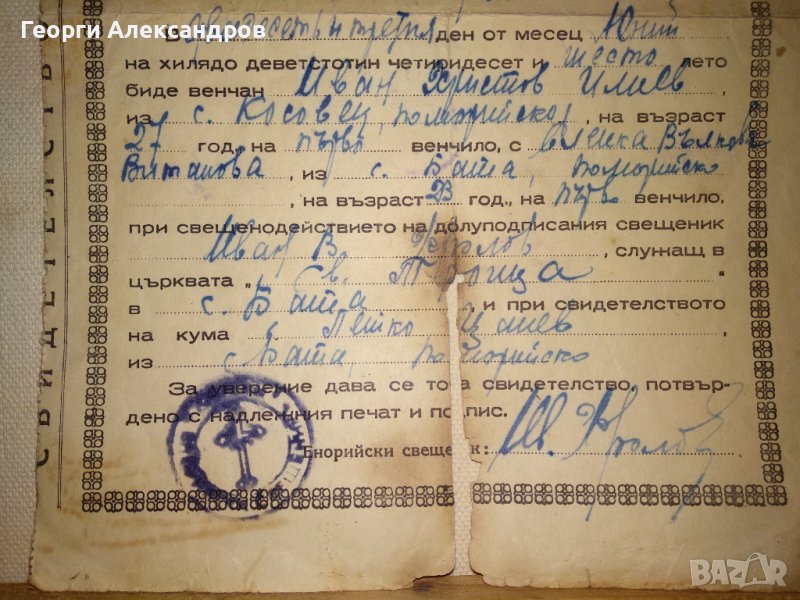 Георги Александров
СВИДЕТЕЛСТВ
В Двадесеть и третия ден от месец Юний
на хилядо деветстотин четиридесет и шесто лето
биде венчан Иван Христов Илиев,
из с. Косовец, поморийско, на възраст
27 год, на първо венчило, с Вълкова
Витанова, из с. Бата, поморийско
, на възраст 23 год., на първо венчило,
при свещенодействието на долуподписания свещеник
Иван В., служащ в
църквата „Св. Троица“
в с. Бата, и при свидетелството
на кума Пенко Цанев,
из с. Бата, поморийско
За уверение дава се това свидетелство, потвър-
дено с надлежния печат и подпис.
Енорийски свещеник:
BAZAR